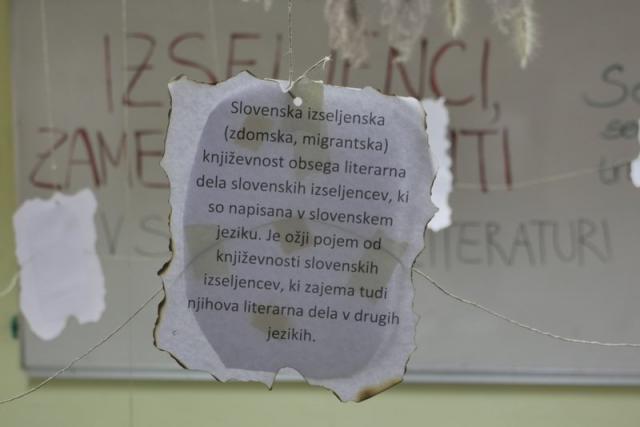 IZSELJENCI,
Slovenska izseljenska
(zdomska, migrantska)
književnost obsega literarna
dela slovenskih izseljencev, ki
so napisana v slovenskem
jeziku. Je ožji pojem od
književnosti slovenskih
izseljencev, ki zajema tudi
njihova literarna dela v drugih
jezikih.